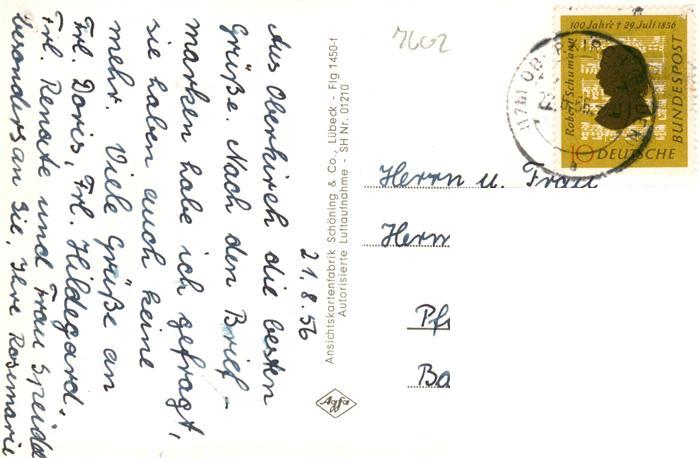 21.8.56
Aus Oberkirch die besten
Grüße. Nach den Brief-
marken habe ich gefragt,
sie haben auch keine
mehr. Viele Grüße an
Frl. Doris, Frl. Hildegard,
Frl. Renate und Frau
besonders an Sie, Ihre Rosmarie
Ansichtskartenfabrik Schöning & Co., Lübeck - Flg 1450-1
Autorisierte Luftaufnahme - SH Nr. 01210
Agfa
7602
100 Jahre † 29. Juli 1856
Robert Schumann
10 DEUTSCHE
BUNDESPOST
Herrn u. Frau
Herrn
Pf
Ba